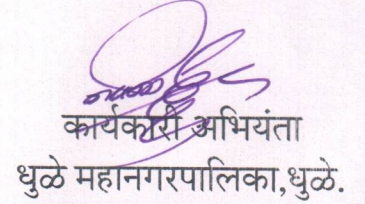 कार्यकारी अभियंता
धुळे महानगरपालिका,धुळे.